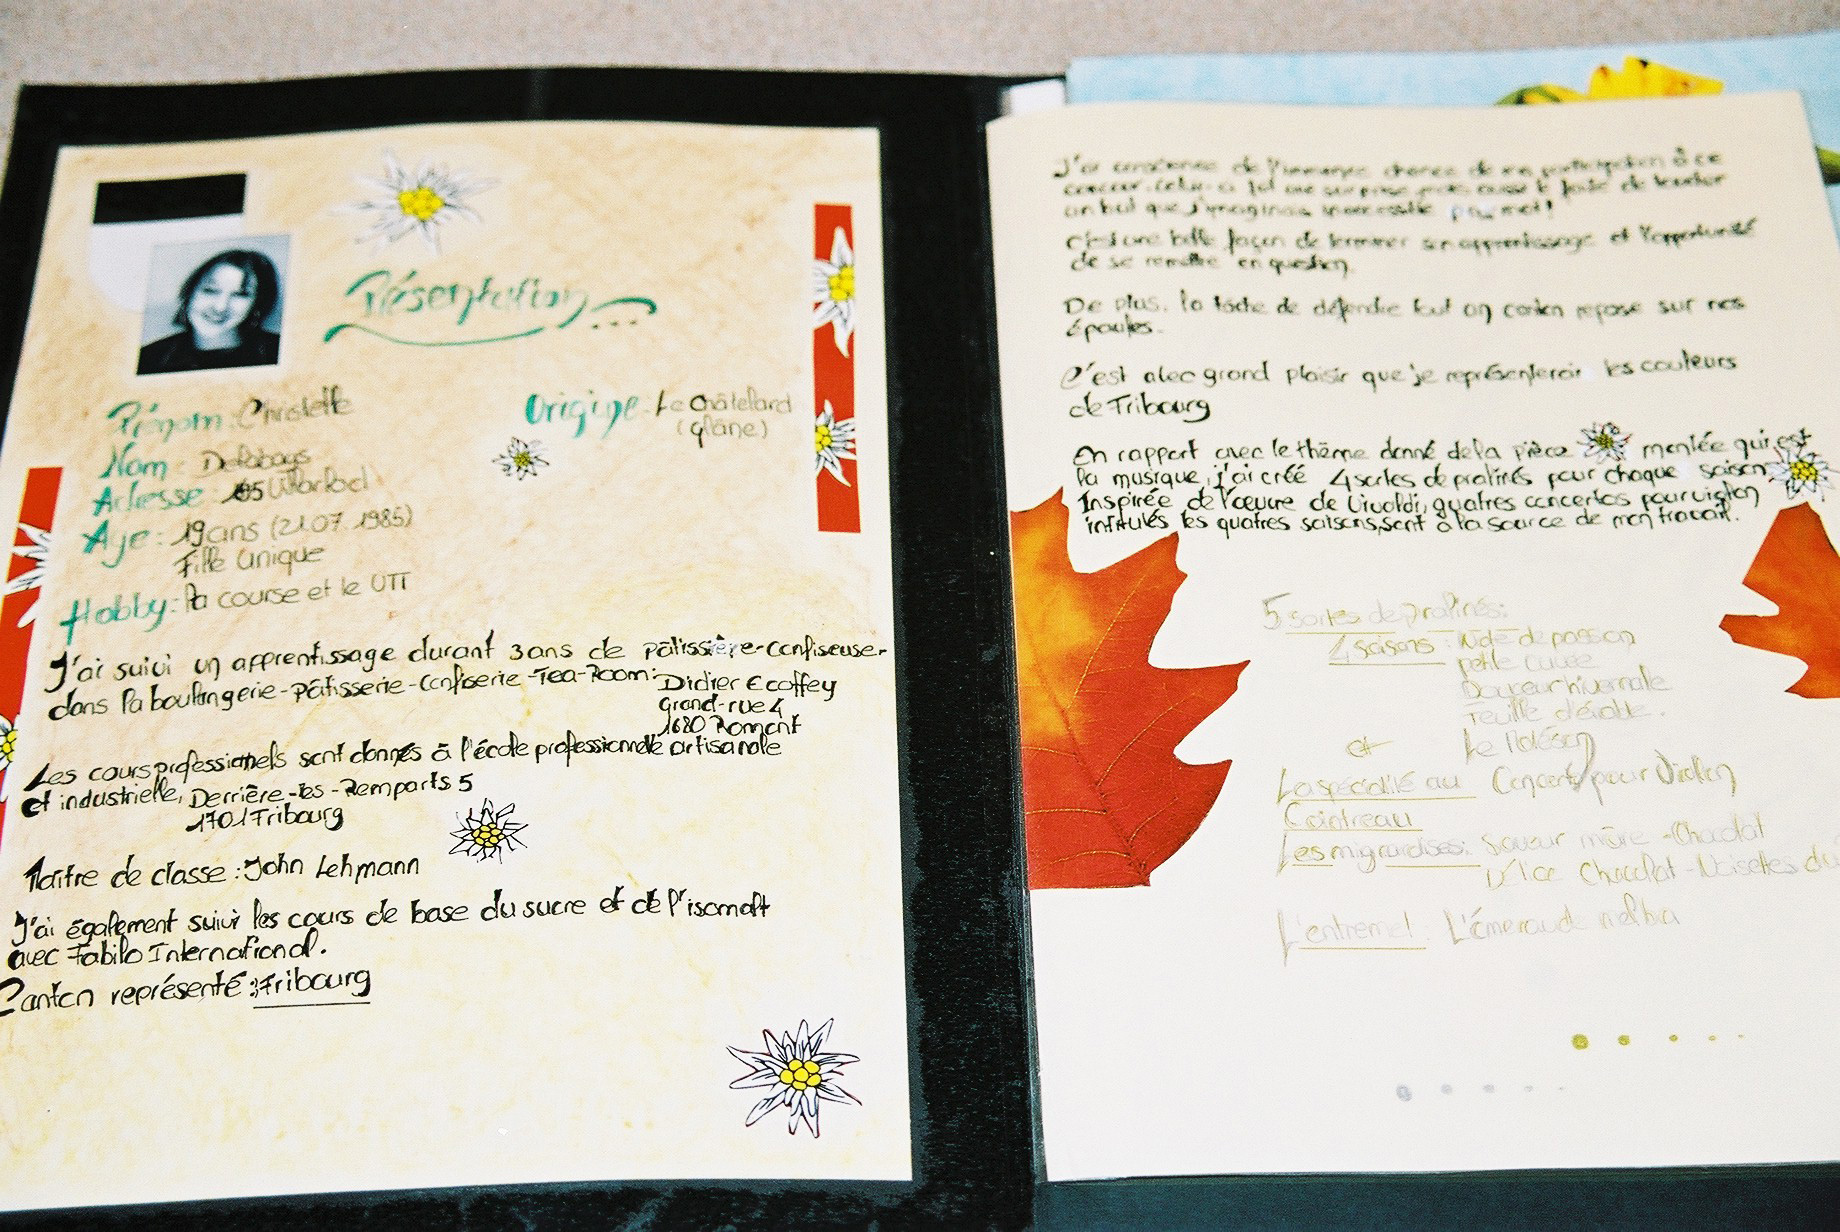 Présentation...
Prénom: Christelle
Origine: Le Châtelard
(Glâne)
Nom: Delabays
Adresse:
Age: 19 ans (21.07.1985)
Fille Unique
Hobby: la course et le VTT
J'ai suivi un apprentissage durant 3 ans de pâtissière-confiseuse-
dans la boulangerie-pâtisserie-confiserie-Tea-Room:
Didier Ecoffey
Grand-rue 4
1680 Romont
Les cours professionnels sont donnés à l'école professionnelle artisanale
et industrielle, Derrière-les-Remparts 5
1701 Fribourg
Maître de classe: John Lehmann
J'ai également suivi les cours de base du sucre et de l'isomalt
avec Fabilo International.
Canton représenté: Fribourg
J'ai conscience de l'immense chance de ma participation à ce
concour. Celui-ci fut une surprise, mais aussi le fait de toucher
un but que j'imaginais inaccessible pour moi!
C'est une belle façon de terminer son apprentissage et l'opportunité
de se remettre en question.
De plus, la tâche de défendre tout un canton repose sur nos
épaules.
C'est avec grand plaisir que je représenterai les couleurs
de Fribourg
En rapport avec le thème donné de la pièce montée qui est
la musique, j'ai créé 4 sortes de pralinés pour chaque saison
Inspirée de l'œuvre de Vivaldi, quatres concertos pour violon
intitulés les quatres saisons, sont à la source de mon travail.
5 sortes de pralinés:
4 saisons: Nid de passion
petite cuvée
Douceur hivernale
Feuille d'érable.
et Le Moléson
La spécialité au Concerto pour Violon
Cointreau
Les mignardises: Saveur mûre-Chocolat
Délice Chocolat-Noisettes du
L'entremet: L'émeraude melba